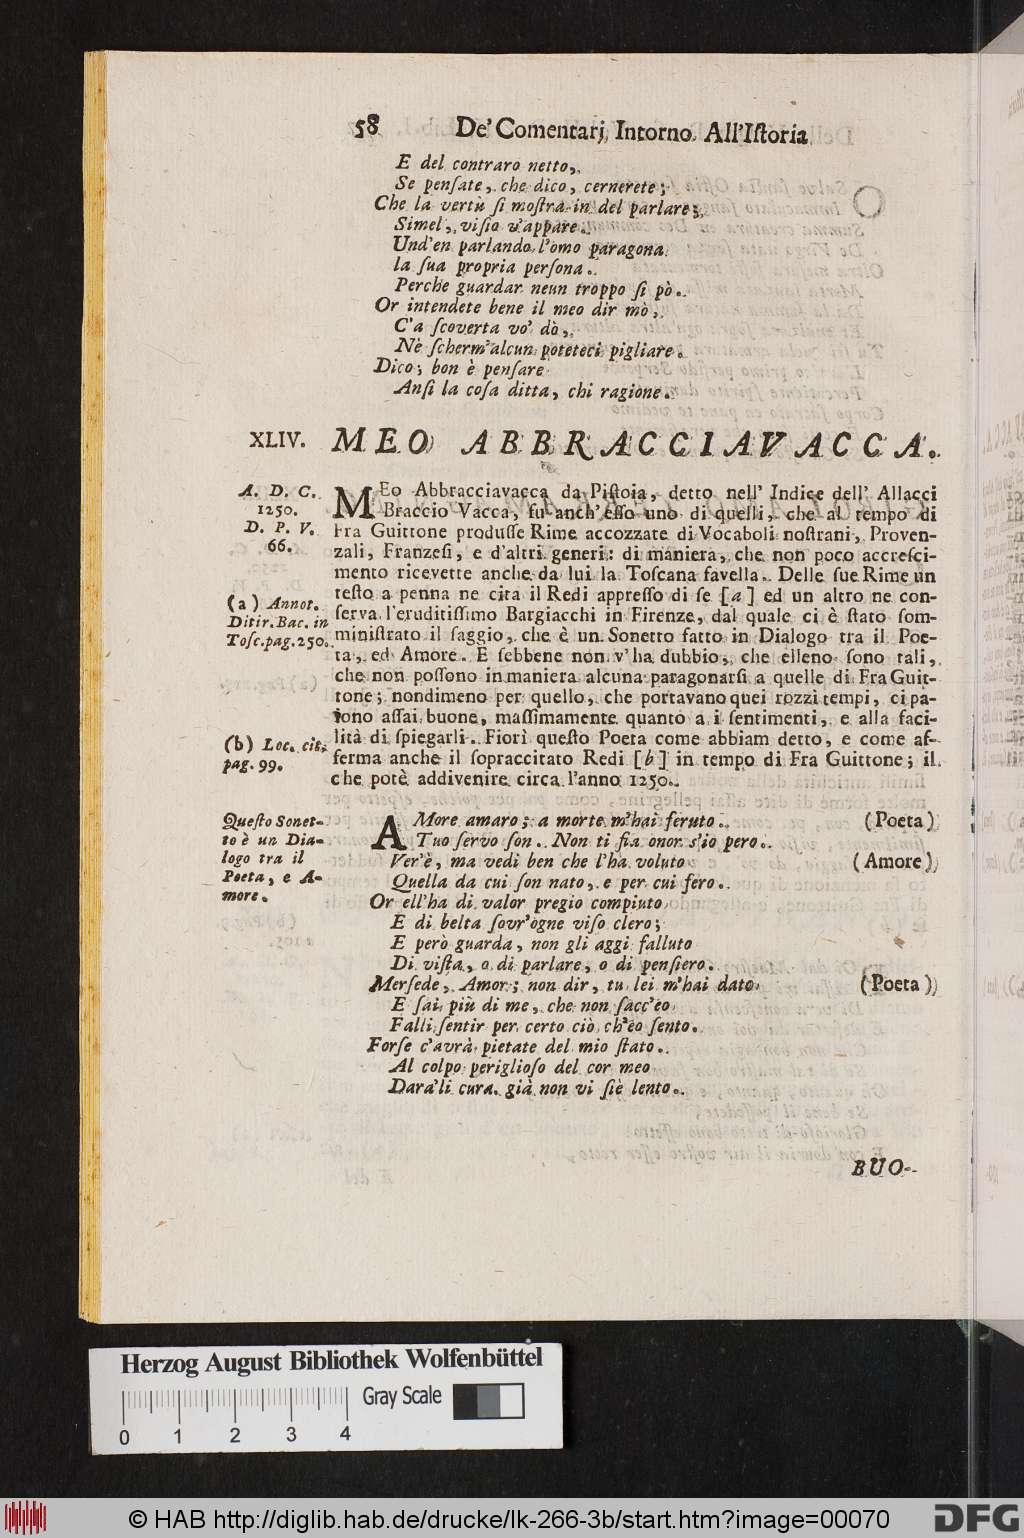 58 De' Comentarj Intorno All'Iſtoria
E del contraro netto,
Se penſate, che dico, cernerete;
Che la vertù ſi moſtra in del parlare;
Simel, viſio v'appare.
Und'en parlando l'omo paragona
la ſua propria perſona.
Perche guardar neun troppo ſi pò.
Or intendete bene il meo dir mò,
C'a ſcoverta vo' dò,
Nè ſcherm'alcun poteteci pigliare.
Dico; bon è penſare
Anſi la coſa ditta, chi ragione.
XLIV. MEO ABBRACCIAVACCA.
A. D. C.
1250.
D. P. V.
66.
(a) Annot.
Ditir. Bac. in
Toſc. pag. 250.
(b) Loc. cit.
pag. 99.
MEo Abbracciavacca da Piſtoia, detto nell' Indice dell' Allacci
Braccio Vacca, fu anch'eſſo uno di quelli, che al tempo di
Fra Guittone produſſe Rime accozzate di Vocaboli noſtrani, Proven-
zali, Franzeſi, e d'altri generi: di maniera, che non poco accreſci-
mento ricevette anche da lui la Toſcana favella. Delle ſue Rime un
teſto a penna ne cita il Redi appreſſo di ſe [a] ed un altro ne con-
ſerva l'eruditiſſimo Bargiacchi in Firenze, dal quale ci è ſtato ſom-
miniſtrato il ſaggio, che è un Sonetto fatto in Dialogo tra il Poe-
ta, ed Amore. E ſebbene non v'ha dubbio, che elleno ſono tali,
che non poſſono in maniera alcuna paragonarſi a quelle di Fra Guit-
tone; nondimeno per quello, che portavano quei rozzi tempi, ci pa-
jono aſſai buone, maſſimamente quanto a i ſentimenti, e alla faci-
lità di ſpiegarli. Fiorì queſto Poeta come abbiam detto, e come af-
ferma anche il ſopraccitato Redi [b] in tempo di Fra Guittone; il
che potè addivenire circa l'anno 1250.
Queſto Sonet-
to è un Dia-
logo tra il
Poeta, e A-
more.
AMore amaro; a morte m'hai feruto. (Poeta)
Tuo ſervo ſon. Non ti fia onor s'io pero.
Ver'è, ma vedi ben che l'ha voluto (Amore)
Quella da cui ſon nato, e per cui fero.
Or ell'ha di valor pregio compiuto
E di belta ſovr'ogne viſo clero;
E però guarda, non gli aggi falluto
Di viſta, o di parlare, o di penſiero.
Merſede, Amor; non dir, tu lei m'hai dato (Poeta)
E ſai più di me, che non ſacc'eo
Falli ſentir per certo ciò, ch'eo ſento.
Forſe c'avrà pietate del mio ſtato.
Al colpo periglioſo del cor meo
Dara'li cura già non vi ſiè lento.
BUO-
Herzog August Bibliothek Wolfenbüttel
Gray Scale
0 1 2 3 4
© HAB http://diglib.hab.de/drucke/lk-266-3b/start.htm?image=00070
DFG